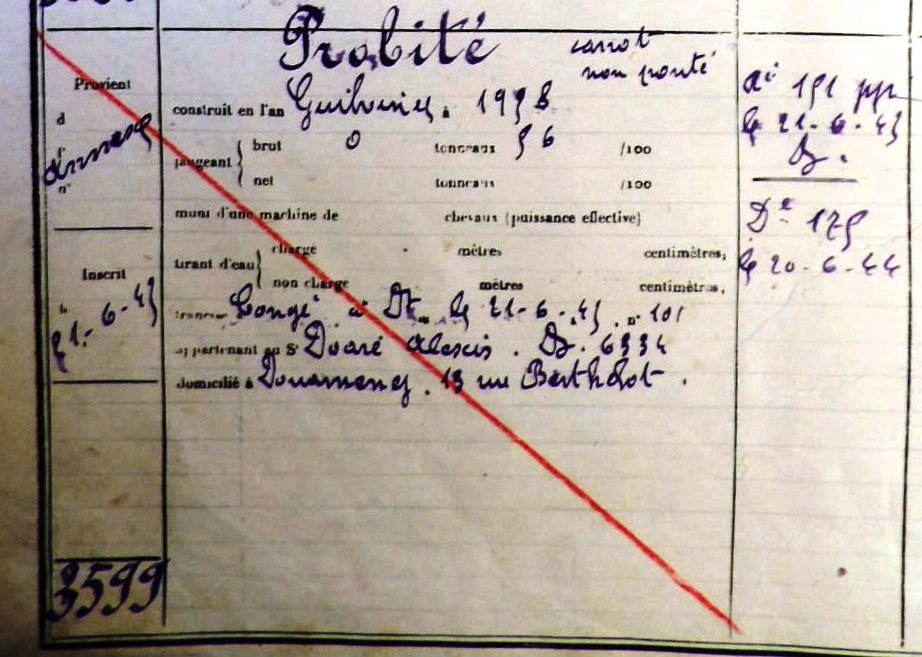 Probité
canot
non ponté
Provient
d
Annexe
n°
construit en l'an Guilvinec à 1938
jaugeant
brut 0 tonneaux 56 /100
net tonneaux /100
muni d'une machine de chevaux (puissance effective)
tirant d'eau
chargé mètres centimètres,
non chargé mètres centimètres,
Congé à Dz le 21-6-45 n° 101
appartenant au Sr Doaré Alexis. Dz. 6334
domicilié à Douarnenez. 13 rue Berthelot.
Inscrit
le
21-6-45
3599
Ac 151
le 21-6-45
Dz.
De 175
le 20-6-44